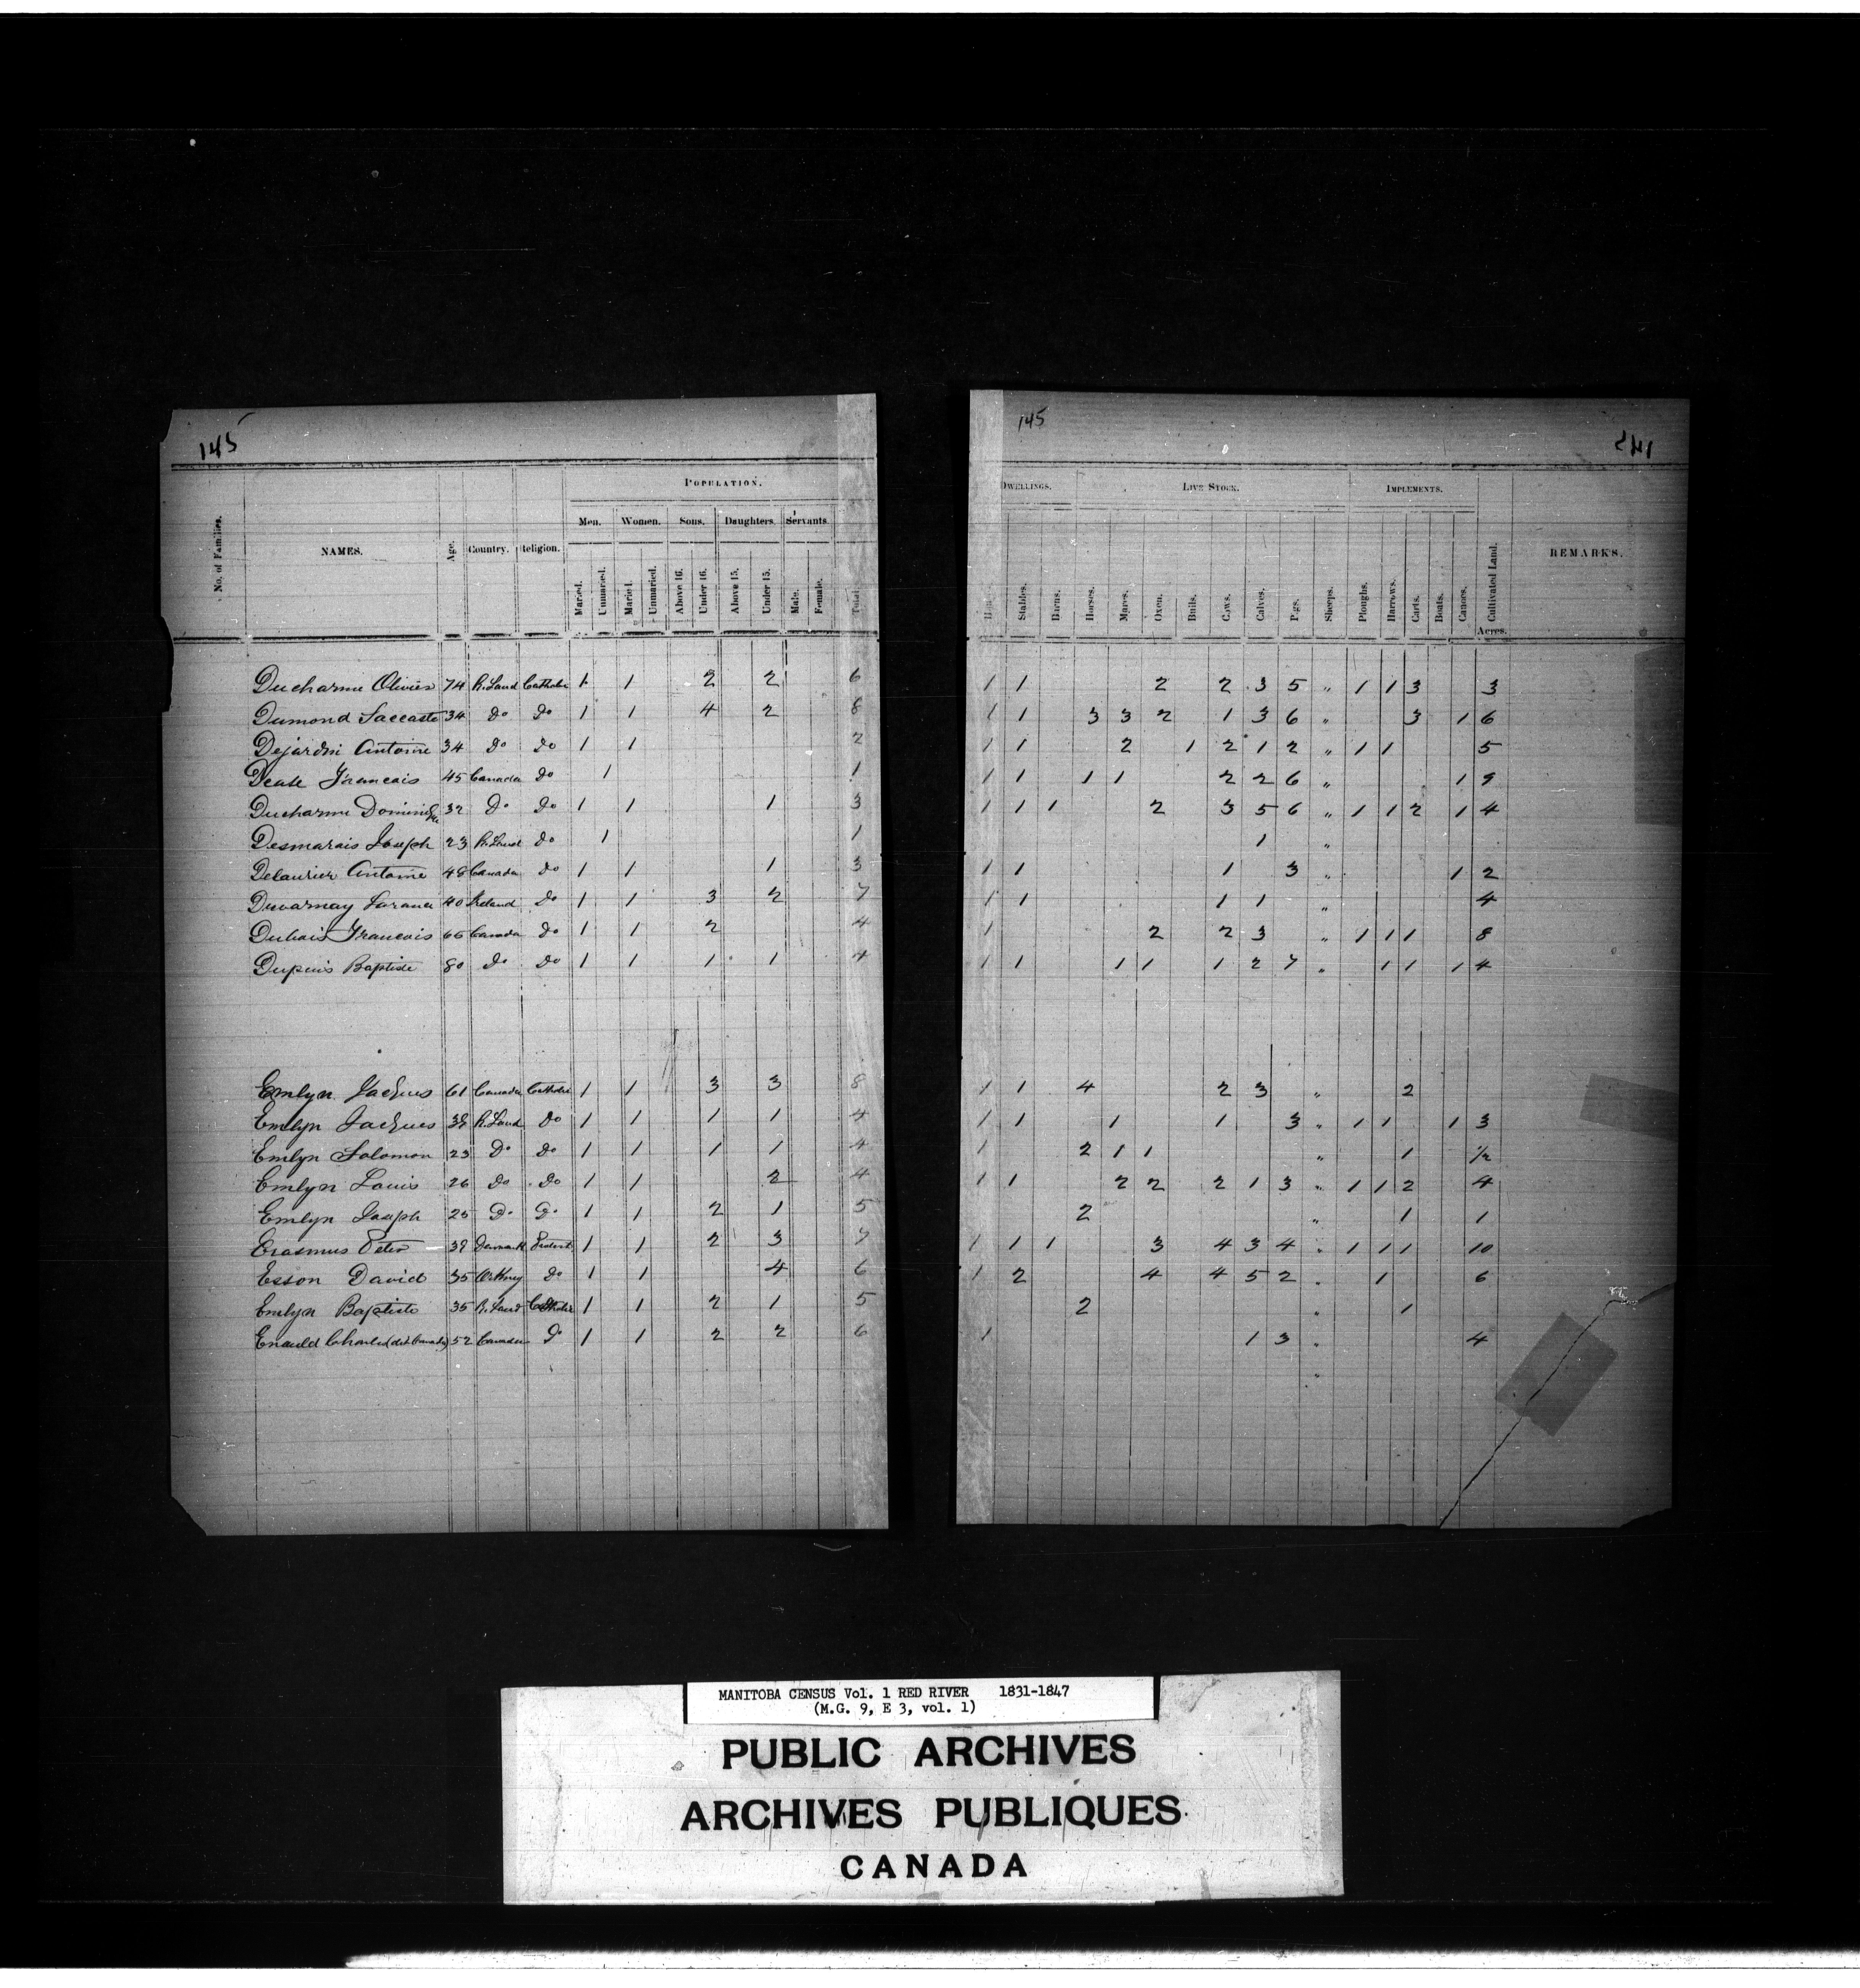 145
145
145
POPULATION.
DWELLINGS. LIVE STOCK. IMPLEMENTS.
Men. Women. Sons. Daughters. Servants
No. of Families. NAMES. Age. Country. Religion. Total. Cultivated Land. REMARKS.
Married. Unmaried. Maried. Unmaried. Above 16. Under 16. Above 15. Under 15. Male. Female.
Stables. Barns. Horses. Mares. Oxen. Bulls. Cows. Calves. Pigs. Sheeps. Ploughs. Harrows. Carts. Boats. Canoes. Acres.
Ducharme Olivier 74 R. Land Catholic 1 1 2 2 6 1 1 2 2 3 5 " 1 1 3 3
Dumond 34 do do 1 1 4 2 8 1 1 3 3 2 1 3 6 " 3 1 6
Dejardin Antoine 34 do do 1 1 2 1 1 2 1 2 1 2 " 1 1 5
Francais 45 Canada do 1 1 1 1 1 1 2 2 6 " 1 9
Ducharme Dominique 32 Do do 1 1 1 3 1 1 1 2 3 5 6 " 1 1 2 1 4
Desmarais Joseph 23 R. Land do 1 1 1 "
Delaurier Antoine 48 Canada do 1 1 1 3 1 1 1 3 " 1 2
Duvarnay 40 Ireland do 1 1 3 2 7 1 1 1 1 " 4
Dubois Francois 66 Canada do 1 1 2 4 1 2 2 3 " 1 1 1 8
Dupuis Baptiste 80 do do 1 1 1 1 4 1 1 1 1 1 2 7 " 1 1 1 4
Emlyn Jacques 61 Canada Catholic 1 1 3 3 8 1 1 4 2 3 " 2
Emlyn Jacques 38 R. Land do 1 1 1 1 4 1 1 1 1 3 " 1 1 1 3
Emlyn Solomon 23 Do do 1 1 1 1 4 1 2 1 1 " 1 1/2
Emlyn Louis 26 do do 1 1 2 4 1 1 2 2 2 1 3 " 1 1 2 4
Emlyn Joseph 25 Do Do 1 1 2 1 5 2 " 1 1
Erasmus Peter 39 Denmark Protest 1 1 2 3 7 1 1 1 3 4 3 4 " 1 1 1 10
Esson David 35 Orkney do 1 1 4 6 1 2 4 4 5 2 " 1 6
Emlyn Baptiste 35 R. Land Catholic 1 1 2 1 5 2 " 1
Enauld Charles (dit Canada) 52 Canada Do 1 1 2 2 6 1 1 3 " 4
"
MANITOBA CENSUS Vol. 1 RED RIVER 1831-1847
(M.G. 9, E 3, vol. 1)
PUBLIC ARCHIVES
ARCHIVES PUBLIQUES
CANADA